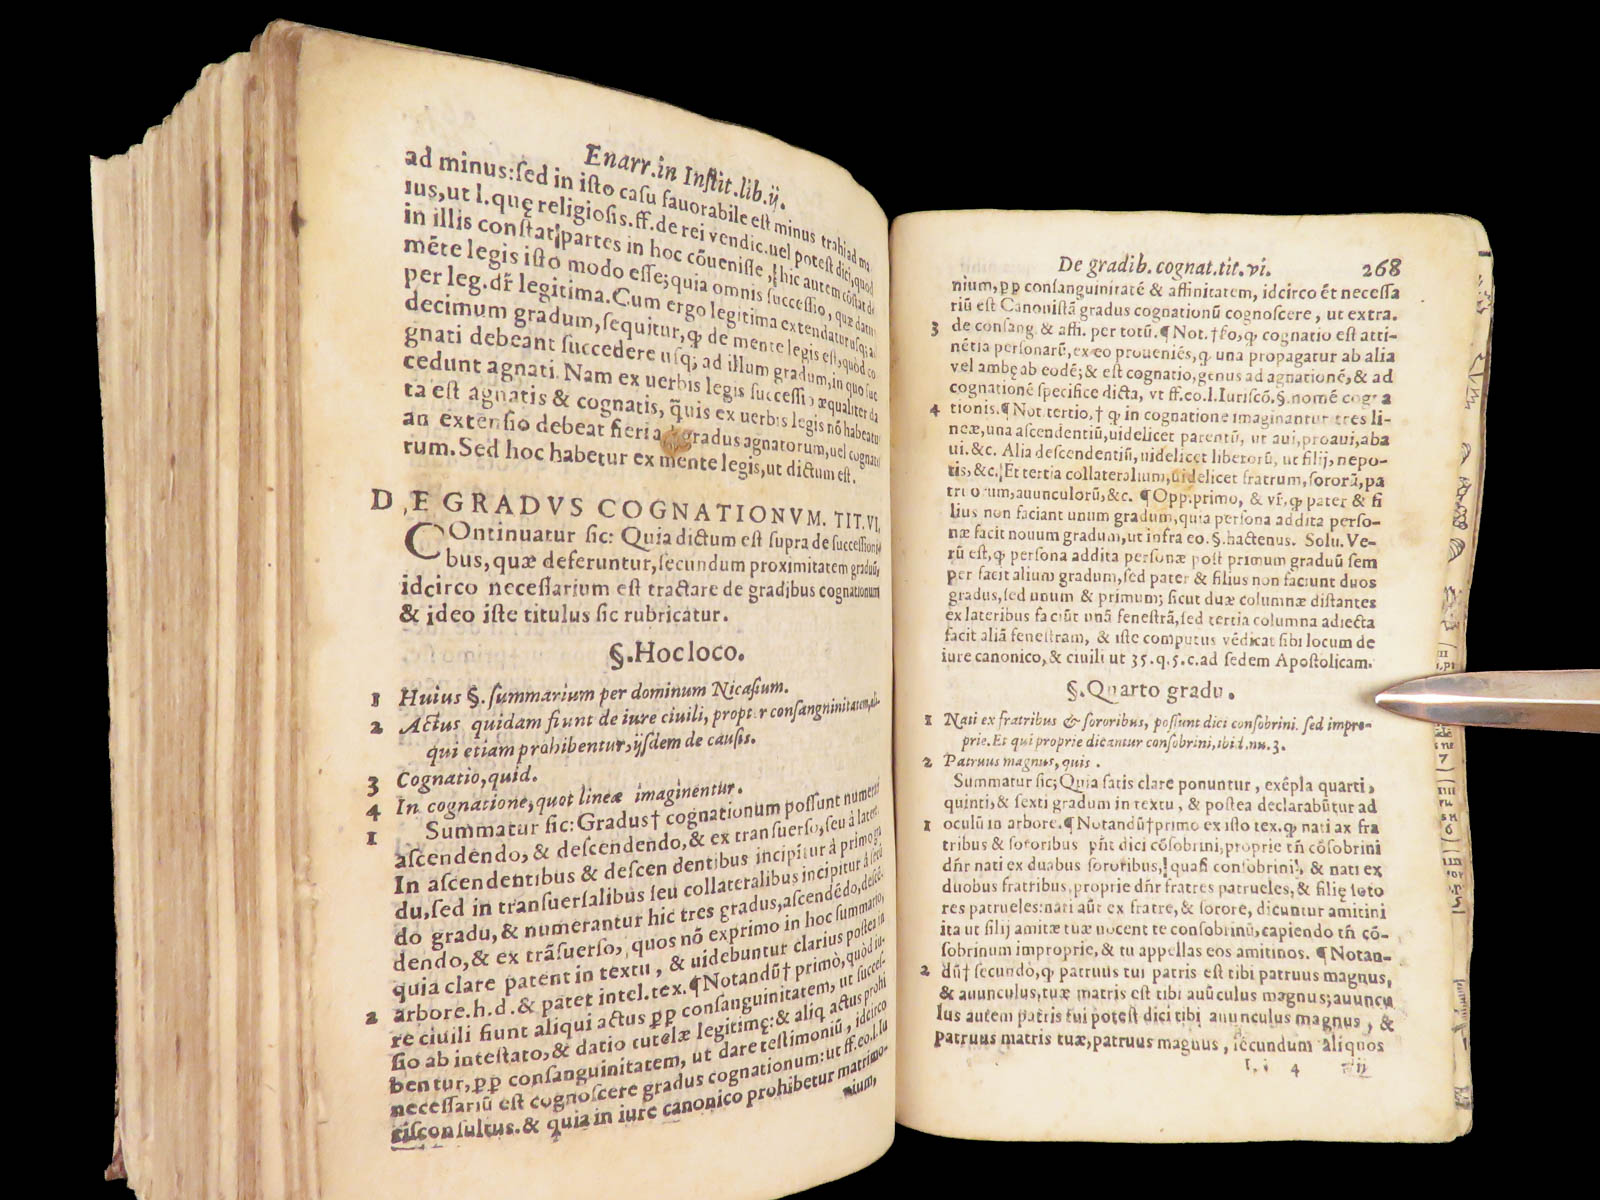 Enarr.in Inſtit.lib.ij.
ad minus:ſed in iſto caſu fauorabile eſt minus trahi ad ma
ius,ut l.quę religioſis.ff.de rei vendic.uel poteſt dici,quòd
in illis conſtat,partes in hoc cōueniſſe, hic autem cōſtat de
mēte legis iſto modo eſſe;quia omnis ſucceſſio, quæ datur
per leg.dr̄ legitima.Cum ergo legitima extendatur uſq; ad
decimum gradum,ſequitur,ꝙ de mente legis eſt,quòd co
gnati debeant ſuccedere uſq; ad illum gradum,in quo ſuc
cedunt agnati. Nam ex uerbis legis ſucceſſio æqualiter da
ta eſt agnatis & cognatis, q̃uis ex uerbis legis nō habeatur
an extenſio debeat fieri a gradus agnatorum,uel cognato
rum.Sed hoc habetur ex mente legis,ut dictum eſt.
DE GRADVS COGNATIONVM. TIT.VI.
COntinuatur ſic: Quia dictum eſt ſupra de ſucceſſioni
bus,quæ deferuntur,ſecundum proximitatem graduū,
idcirco neceſſarium eſt tractare de gradibus cognationum
& ideo iſte titulus ſic rubricatur.
§.Hoc loco.
1 Huius §.ſummarium per dominum Nicaſium.
2 Actus quidam fiunt de iure ciuili, propter conſanguinitatem,ali-
qui etiam prohibentur,ijſdem de cauſis.
3 Cognatio,quid.
4 In cognatione,quot lineæ imaginentur.
1 Summatur ſic:Gradus† cognationum poſſunt numerari
aſcendēdo, & deſcendendo,& ex tranſuerſo,ſeu à latere.
In aſcendentibus & deſcendentibus incipitur à primo gra
du,ſed in tranſuerſalibus ſeu collateralibus incipitur à ſecū
do gradu, & numerantur hic tres gradus,aſcendēdo,deſcē
dendo, & ex trāſuerſo, quos nō exprimo in hoc ſummario,
quia clare patent in textu, & uidebuntur clarius poſtea in
2 arbore.h.d.& patet intel.tex.¶Notandū† primò,quòd iu-
re ciuili fiunt aliqui actus ꝓꝑ conſanguinitatem, ut ſucceſ-
ſio ab inteſtato,& datio tutelæ legitimę:& aliq̃ actus prohi
bentur,ꝓꝑ conſanguinitatem, ut dare teſtimoniū, idcirco
neceſſariū eſt cognoſcere gradus cognationum:ut ff.eo.l.Iu
riſconſultus.& quia in iure canonico prohibetur matrimo-
nium,
De gradib. cognat.tit.vi. 268
nium, ꝓꝑ conſanguinitatē & affinitatem, idcirco ēt neceſſa
riū eſt Canoniſtā gradus cognationū cognoſcere, ut extra.
3 de conſang.& affi. per totū.¶Not.†ſo,ꝙ cognatio eſt atti-
nētia perſonarū,ex eo proueniēs,ꝙ una propagatur ab alia
vel ambę ab eodē;& eſt cognatio,genus ad agnationē,& ad
cognationē ſpecifice dicta, vt ff.eo.l.Iuriſcō.§.nomē cogna
4 tionis.¶Not.tertio,† ꝙ in cognatione imaginantur tres li-
neæ,una aſcendentiū,uidelicet parentū, ut aui,proaui,aba
ui.&c. Alia deſcendentiū,uidelicet liberorū, ut filij, nepo-
tis,&c. Et tertia collateralium,uidelicet fratrum,ſororū,pa
truorum,auunculorū,&c. ¶Opp.primo, & vr̄.ꝙ pater & fi
lius non faciant unum gradum,quia perſona addita perſo-
næ facit nouum gradum,ut infra eo.§.hactenus. Solu. Ve-
rū eſt,ꝙ perſona addita perſonæ poſt primum gradū ſem
per facit alium gradum,ſed pater & filius non faciunt duos
gradus,ſed unum & primum; ſicut duæ columnæ diſtantes
ex lateribus faciūt unā feneſtrā,ſed tertia columna adiecta
facit aliā feneſtram, & iſte computus vēdicat ſibi locum de
iure canonico,& ciuili ut 35.q.5.c.ad ſedem Apoſtolicam.
§.Quarto gradu.
1 Nati ex fratribus & ſororibus, poſſunt dici conſobrini. ſed impro-
prie.Et qui proprie dicantur conſobrini,ibid.nu.3.
2 Patruus magnus, quis.
Summatur ſic;Quia ſatis clare ponuntur, exēpla quarti,
quinti,& ſexti gradum in textu, & poſtea declarabūtur ad
1 oculū in arbore.¶Notandū†primo ex iſto tex.ꝙ nati ax fra
tribus & ſororibus pn̄t dici cōſobrini,proprie tn̄ cōſobrini
dn̄r nati ex duabus ſororibus, quaſi conſobrini, & nati ex
duobus fratribus,proprie dn̄r fratres patrueles,& filię ſoro
res patrueles:nati aūt ex fratre,& ſorore, dicuntur amitini
ita ut filij amitæ tuæ uocent te conſobrinū,capiendo tn̄ cō-
ſobrinum improprie,& tu appellas eos amitinos. ¶Notan-
2 dū† ſecundò,ꝙ patruus tui patris eſt tibi patruus magnus,
& auunculus,tuæ matris eſt tibi auūculus magnus;auuncu
lus autem patris tui poteſt dici tibi auunculus magnus, &
patruus matris tuæ,patruus magnus, ſecundum aliquos
4